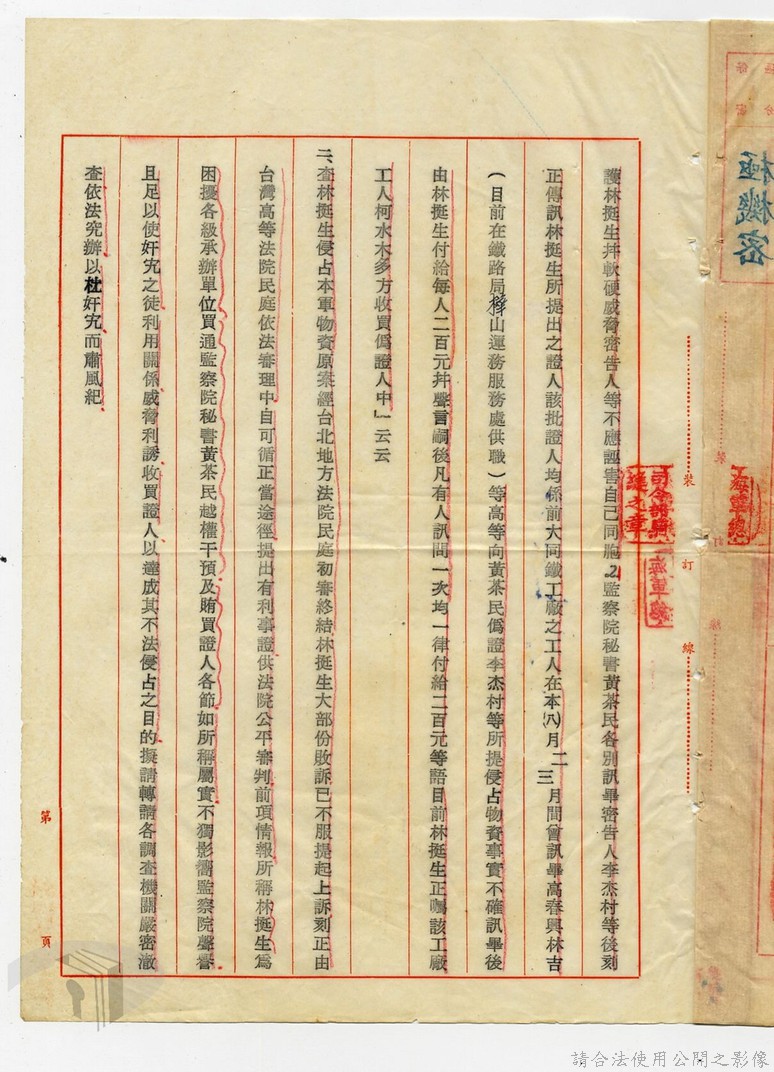 護林挺生幷軟硬威脅密告人等不應誣害自己同胞2監察院秘書黃茶民各別訊畢密告人李杰村等後刻
正傳訊林挺生所提出之證人該批證人均係前大同鐵工廠之工人在本(八)月二三月間曾訊畢高春興林吉
(目前在鐵路局樟山運務服務處供職)等高等向黃茶民僞證李杰村等所提侵占物資事實不確訊畢後
由林挺生付給每人二百元幷聲言嗣後凡有人訊問一次均一律付給二百元等語目前林挺生正囑該工廠
工人柯水木多方收買僞證人中」云云
二、查林挺生侵占本軍物資原案經台北地方法院民庭初審終結林挺生大部份敗訴已不服提起上訴刻正由
台灣高等法院民庭依法審理中自可循正當途徑提出有利事證供法院公平審判前項情報所稱林挺生爲
困擾各級承辦單位買通監察院秘書黃茶民越權干預及賄買證人各節如所稱屬實不獨影響監察院聲譽
且足以使奸宄之徒利用關係威脅利誘收買證人以達成其不法侵占之目的擬請轉請各調查機關嚴密澈
查依法究辦以杜奸宄而肅風紀
極機密
裝
訂
線
海軍總
司令部
之章
第
頁
請合法使用公開之影像